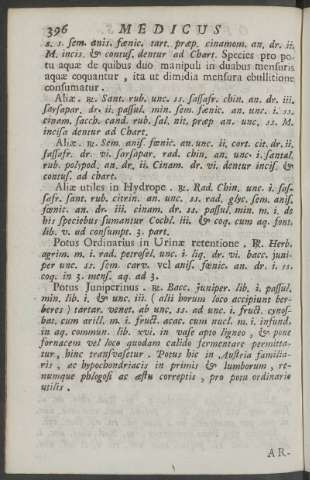 396 MEDICUS
s. s. sem. anis. fœnic. tart. præp. cinamom. an. dr. ii.
M. incis. & contus. dentur ad Chart. Species pro po-
tu aquæ de quibus duo manipuli in duabus mensuris
aquæ coquantur, ita ut dimidia mensura ebullitione
consumatur.
Aliæ. ℞. Sant. rub. unc. ss. sassafr. chin. an. dr. iii.
sarsapar. dr. ii. passul. min. sem. fœnic. an. unc. i. ss.
cinam. sacch. cand. rub. sal. nit. præp an. unc. ss. M.
incisa dentur ad Chart.
Aliæ. ℞. Sem. anis. fœnic. an. unc. ii. cort. cit. dr. ii.
sassafr. dr. vi. sarsapar. rad. chin. an. unc. i. santal.
rub. polipod. an. dr. ii. Cinam. dr. vi. dentur incis. &
contus. ad chart.
Aliæ utiles in Hydrope. ℞. Rad. Chin. unc. i. sas-
safr. sant. rub. citrin. an. unc. ss. rad. glyc. sem. anis.
fœnic. an. dr. iii. cinam. dr. ss. passul. min. m. i. de
his speciebus sumantur Cochl. iii. & coq. cum aq. font.
lib. v. ad consumpt. 3. part.
Potus Ordinarius in Urinæ retentione. ℞. Herb.
agrim. m. i. rad. petrosel. unc. i. liq. dr. vi. bacc. juni-
per unc. ss. sem. carv. vel anis. fœnic. an. dr. i. ss.
coq. in 3. mens. aq. ad 3.
Potus Juniperinus. ℞. Bacc. juniper. lib. i. passul.
min. lib. i. & unc. iii. (alii horum loco accipiunt ber-
beres) tartar. venet. ab unc. ss. ad unc. i. fruct. cynos-
bat. cum arill. m. i. fruct. acat. cum nucl. m. i. infund.
in aq. commun. lib. xvi. in vase apto ligneo, & pone
fornacem vel loco quodam calido fermentare permitta-
tur, hinc transvasetur. Potus hic in Austria familia-
ris, ac hypochondriacis in primis & lumborum, re-
numque phlogosi ac æstu correptis, pro potu ordinario
utilis.
AR-